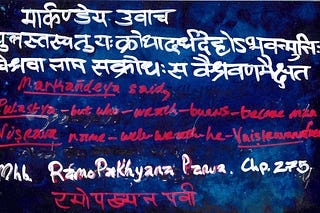 मार्कण्डेय उवाच
पुलस्त्यस्य तु यः क्रोधादर्धदेहोऽभवन्मुनिः
विश्रवा नाम सक्रोधः स वैश्रवणमैक्षत
Markandeya said,
Pulastya - but who - wrath - burns - became
Visrava name - with wrath - he - Vaisravana
Mbh RamoPakhyana Parva. Chp. 275,
रामोपख्यान पर्वा